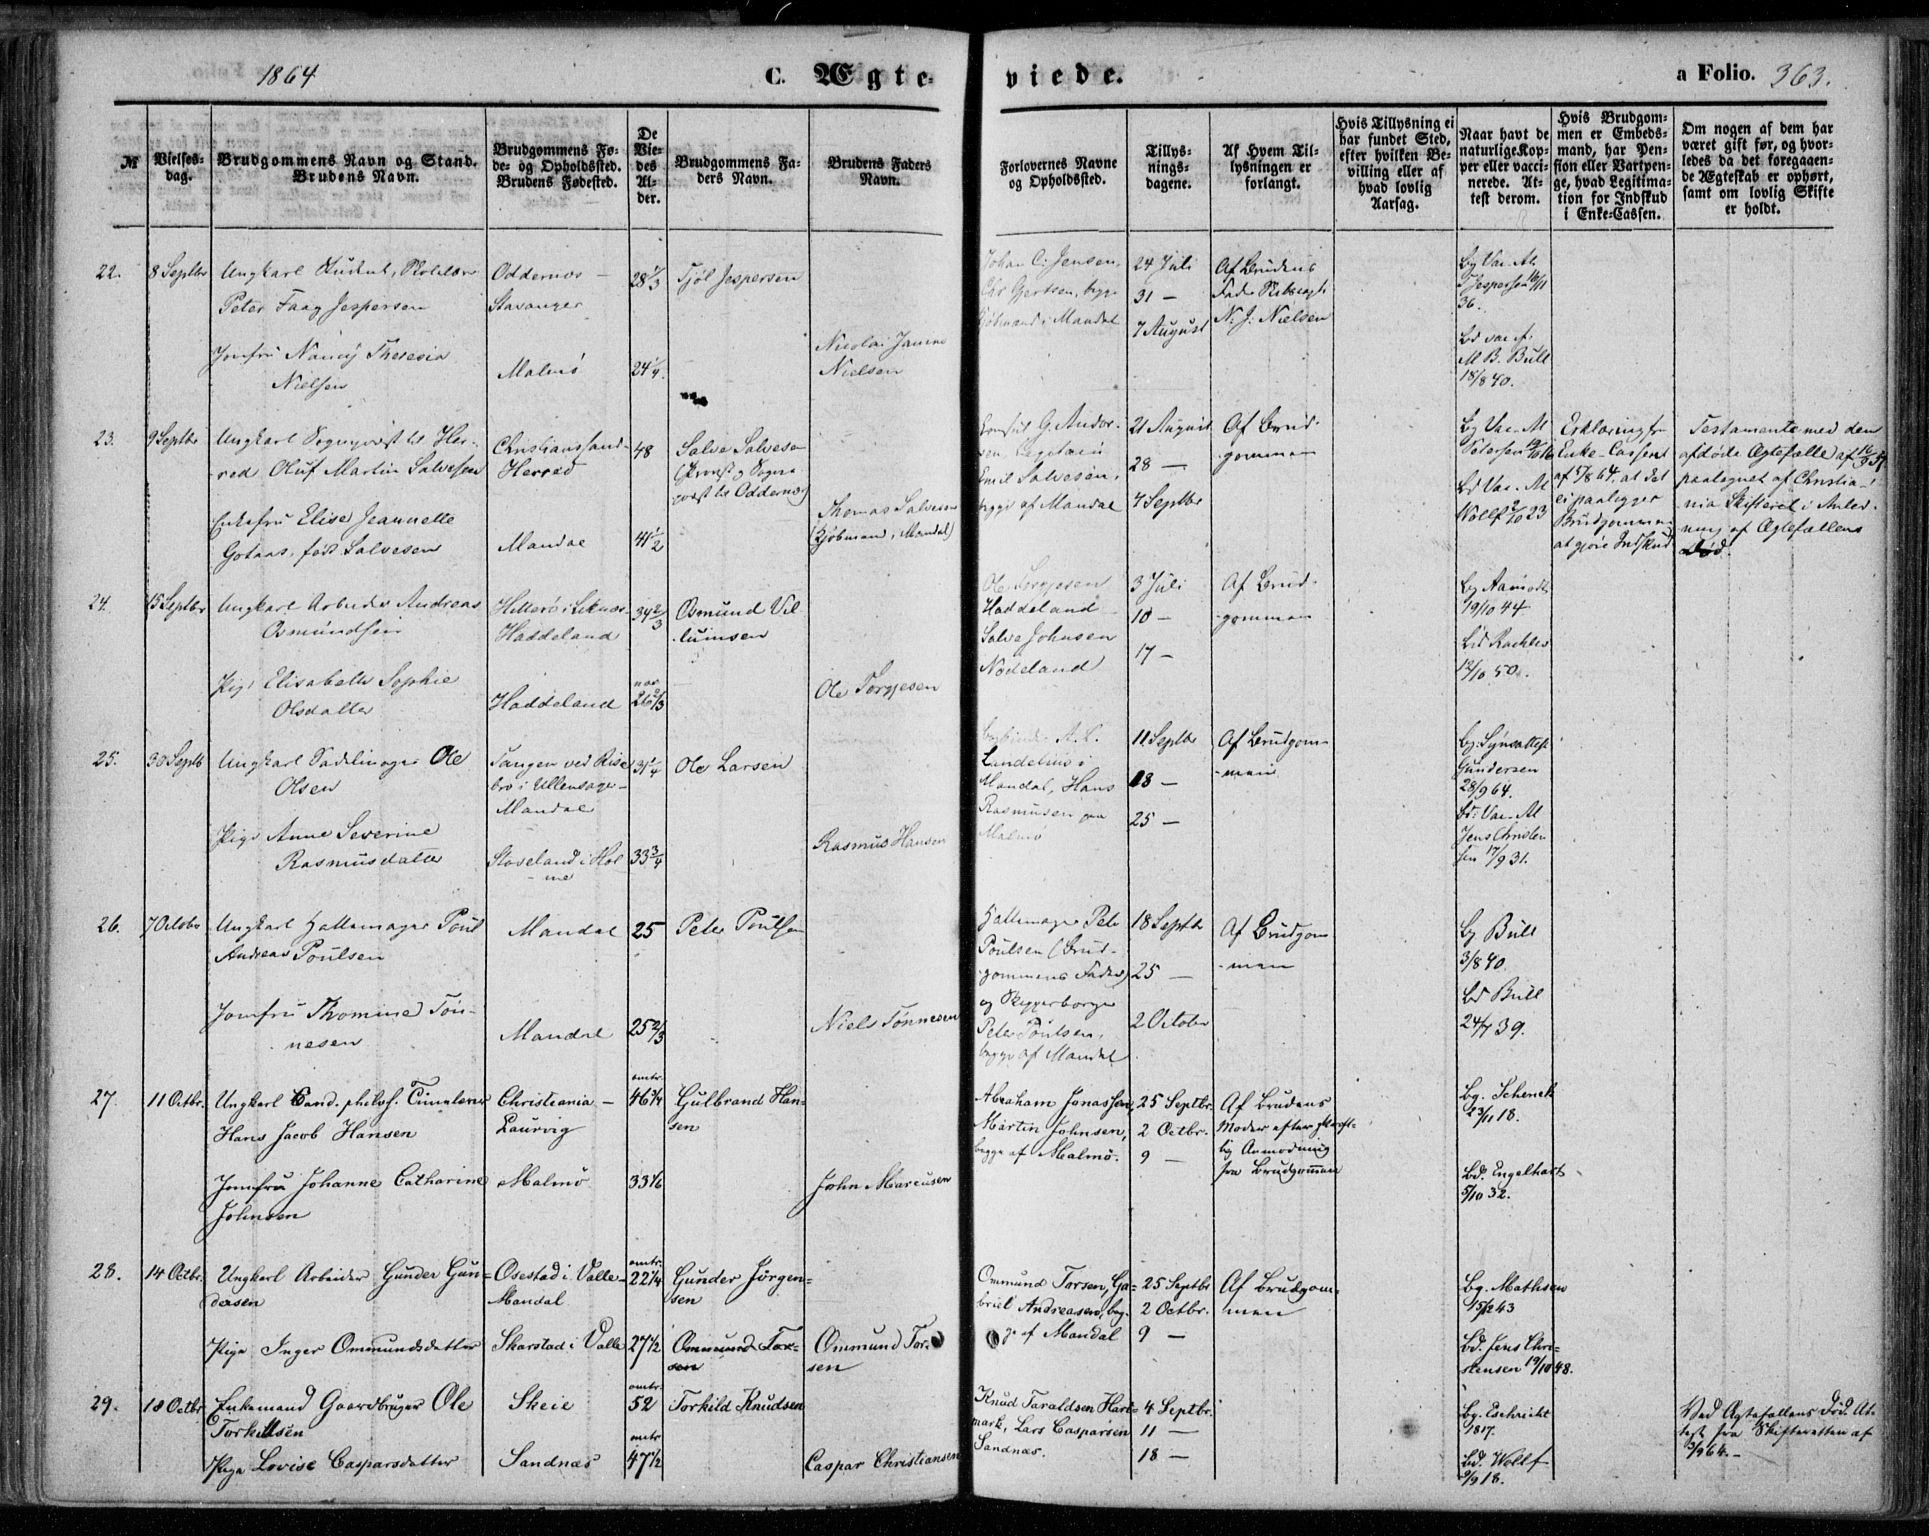 1864
C. Ægteviede.
a Folio. 363.
№
Vielsesdag.
Brudgommens Navn og Stand.
Brudens Navn.
Brudgommens Føde- og Opholdssted.
Brudens Fødested.
De Viedes Alder.
Brudgommens Faders Navn.
Brudens Faders Navn.
Forlovernes Navne og Opholdssted.
Tillysningsdagene.
Af Hvem Tillysningen er forlangt.
Hvis Tillysning ei har fundet Sted, efter hvilken Bevilling eller af hvad lovlig Aarsag.
Naar havt de naturlige Kopper eller vaccinerede. Attest derom.
Hvis Brudgommen er Embedsmand, har Pension eller Vartpenge, hvad Legitimation for Indskud i Enke-Cassen.
Om nogen af dem har været gift før, og hvorledes da det foregaaende Ægteskab er ophørt, samt om lovlig Skifte er holdt.
22. 8 Septbr Ungkarl Student,
Peter Faag Jespersen
Oddernes –
Stavanger
28 1/3
Tjöl Jespersen
Johan C. Jensen,
Chr Gjertsen, begge
Kjöbmænd i Mandal
24 Juli
31 –
7 August
Af Brudens
Fader
N. J. Nielsen
Bg Vac. At.
Jespersen 16/11
36.
Jomfru Nancy Theresia
Nielsen
Malmö
24 1/4.
Nicolai
Nielsen
Bd vac. A.
M B. Bull
18/8 40.
23. 9 Septbr Ungkarl Sogneprest til Her-
red Oluf Martin Salvesen
Christianssand –
Herred
48
Salve Salvesen
(Provst og Sogne
prest til Oddernes)
Consul G. Andor-
sen,
Emil Salvesen,
begge af Mandal
21 August
28 –
4 Septbr
Af Brud-
gommen
Bg Vac. At
Erklæring fr
Enke-Cassen
af 5/8 64, at det
ei paalegger
Brudgommen
at gjöre Indskud
Testamente med den
afdöde Ægtefælle af
paategnet af Christia-
nia Skifteret i Anled-
ning af Ægtefællens
Död.
Enkefru Elise Jeannette
Gotaas, född Salvesen
Mandal
41 1/2
Thomas Salvesen
(Kjöbmand i Mandal)
Bd Vac. At
Wolff 2/10 23
24. 15 Septbr Ungkarl Arbeider Andreas
Osmundsen
Hitterö i Liknes –
Haddeland
34 2/3
Osmund Vil-
lumsen
Ole Torgjesen
Haddeland
Salve Johnsen
Nodeland
3 Juli
10 –
17 –
Af Brud-
gommen
19/10 44
Pige Elisabeth Sophie
Olsdatter
Haddeland
26 2/3
Ole Torgjesen
12/10 50.
25. 30 Septb Ungkarl Sadelmager Ole
Olsen
Tangen ved Rise
bro i Ullensager –
Mandal
31 1/4
Ole Larsen
Mandal, Hans
Rasmusen paa
Malmö
11 Septbr
18 –
25 –
Af Brudgom-
men
Bg. Synsattest
Gundersen
28/9 64.
Pige Anne Severine
Rasmusdatter
Stoveland i Hol-
me
33 3/4
Rasmus Hansen
Bd. Vac. At
Jens Christen
sen 17/9 31.
26. 7 October Ungkarl Hattemager Poul
Andreas Poulsen
Mandal
25
Peter Poulsen
Hattemager Peter
Poulsen (Brud-
gommens Fader)
og Skipperborger
Peter Poulsen,
begge af Mandal
18 Septbr
25 –
2 October
Af Brudgom
-men
Bg Bull
3/8 40.
Jomfru Thomine Tön-
nesen
Mandal
25 2/3
Niels Tönnesen
Bd Bull
24/7 39.
27. 11 Octbr. Ungkarl Cand. philos. Timelærer
Hans Jacob Hansen
Christiania –
Laurvig
omtr.
46 1/4
Gulbrand Han-
sen
Abraham Jonassen,
Martin Johnsen,
begge af Malmö.
25 Septbr.
2 Octbr.
9 –
Af Brudens
Moder efter skrift-
lig Anmodning
fra Brudgommen
Bg. Schenck
23/11 18.
Jomfru Johanne Catharine
Johnsen
Malmö
33 1/6
John Marcusen
Bd. Engelhart
5/10 32.
28. 14 Octbr. Ungkarl Arbeider Gunder Gun-
dersen
Osestad i Valle –
Mandal
omtr.
22 1/4
Gunder Jörgen-
sen
Ommund Torsen, Ga-
briel Andreasen, beg-
ge af Mandal
25 Septbr
2 Octbr.
9 –
Af Brudgom-
men
Bg. Mathsen
15/12 43
Pige Inger Ommundsdatter
Skarstad i Valle
27 1/2
Ommund Tor-
sen
Ommund Tor-
sen
Bd. Jens Chri-
stensen 19/10 48.
29. 18 Octbr. Enkemand Gaardbruger Ole
Torkildsen
Skeie
omtr.
52
Torkild Knudsen
Knud Taraldsen Hart-
mark, Lars Casparsen
Sandnæs.
4 Septbr.
11 –
18 –
Bg. Eschricht
1817.
Ved Ægtefællens Död. At-
test fra Skifteretten af
3/9 64. –
Pige Lovise Caspersdatter
Sandnæs
omtr
47 1/2
Caspar Christiansen
Bd. Wolff
9/9 18.